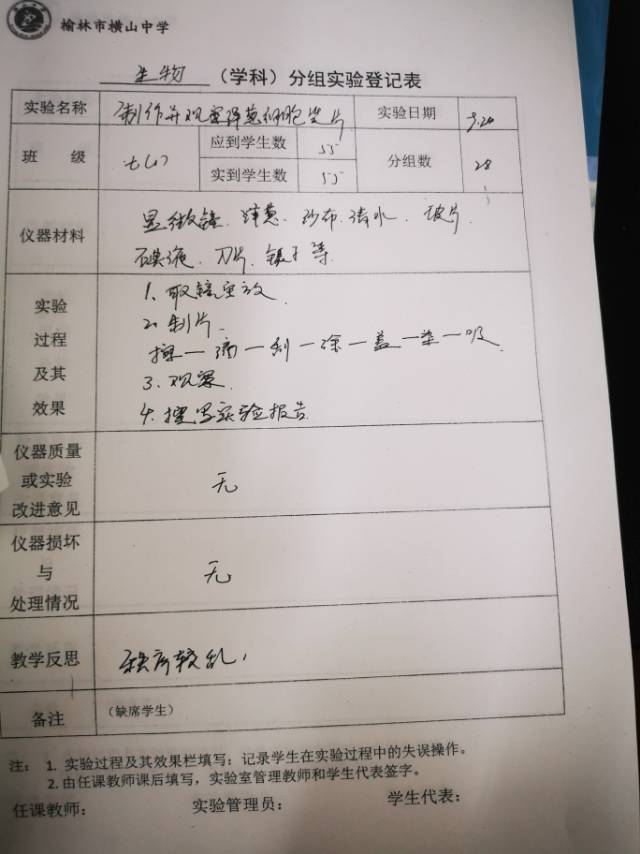 榆林市横山中学
生物（学科）分组实验登记表
实验名称 制作并观察洋葱细胞装片 实验日期 9.20
班 级 七(1) 应到学生数 55 分组数 28
实到学生数 55
仪器材料 显微镜、洋葱、纱布、清水、玻片
碘液、刀片、镊子等
实验
过程
及其
效果
1、取镜安放
2、制片
擦一滴一刮一涂一盖一染一吸
3、观察
4、撰写实验报告
仪器质量
或实验
改进意见
无
仪器损坏
与
处理情况
无
教学反思 秩序较乱，
备注 （缺席学生）
注： 1. 实验过程及其效果栏填写：记录学生在实验过程中的失误操作。
2.由任课教师课后填写，实验室管理教师和学生代表签字。
任课教师： 实验管理员： 学生代表：